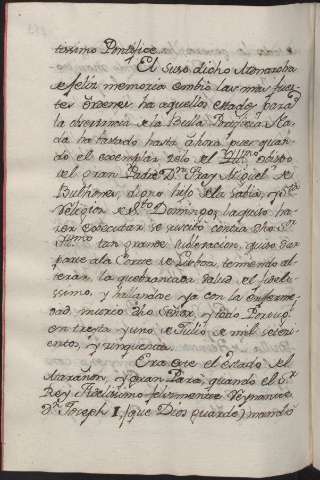 tissimo Pontifice.
El suso dicho Monarcha
de feliz memoria embio las mas fuer-
tes ordenes ha aquellos estados para
la observancia de la Bula Pontificia. Na-
da ha bastado hasta ahora, pues quan-
do el exemplar zelo del Ill.mo obispo
del gran Pará D.n Fray Miguel de
Bulhoens, digno hijo de la sabia, y S.ta
Religion de S.to Domingo, la quiso ha-
zer executar, se suscitó contra dho S.or
Ill.mo tan grande sublevacion, quiso dar
parte a la Corte de Lisboa, temiendo al-
terar, la quebrantada salud del fideli-
ssimo, y hallandose ya con la enferme-
dad, murió dho Señor, y todo Portugal
en treynta y uno de Julio de mil setesi-
entos, y cinquenta.
Era este el estado del
Marañon, y gran Pará, quando el S.r
Rey Fidelissimo felizmente Reynante,
D.n Joseph I. (que Dios guarde) mandó